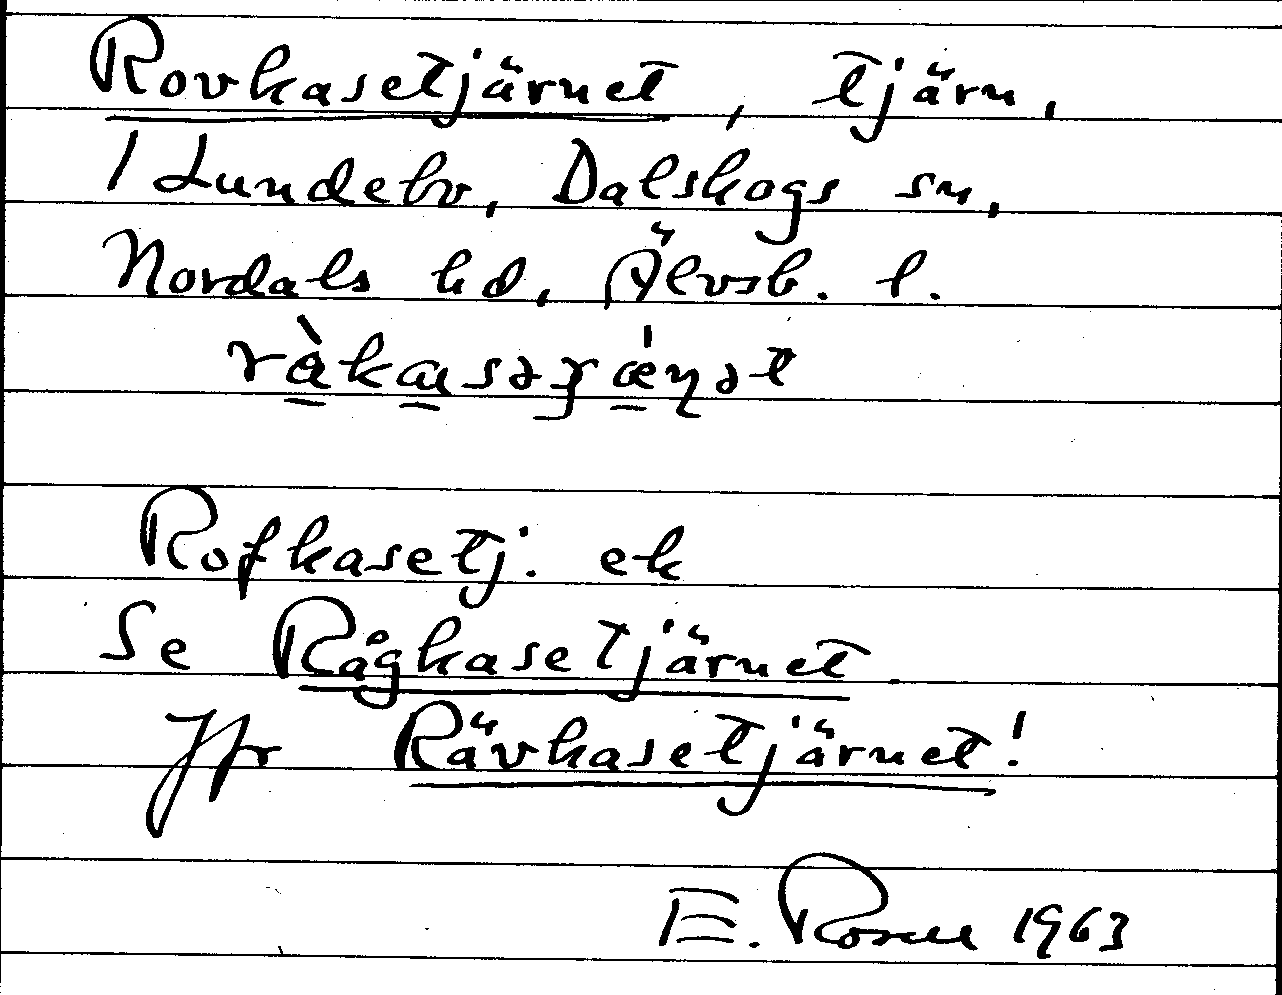 Rovkasetjärnet, tjärn,
1 Lundebo, Dalskogs sn,
Nordals hd, Älvsb. l.
Rofkasetj. ek
Se Rågkasetjärnet.
Jfr Rävkasetjärnet!
E. Rosell 1963